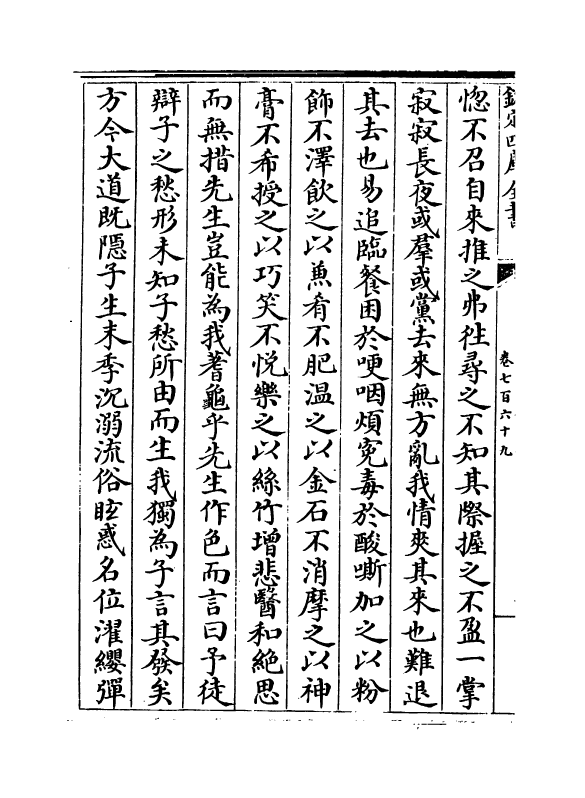 欽定四庫全書
卷七百六十九
惚不召自來推之弗徃尋之不知其際握之不盈一掌
寂寂長夜或羣或黨去來無方亂我情爽其來也難退
其去也易追臨餐困於哽咽煩寃毒於酸嘶加之以粉
飾不澤飲之以兼肴不肥温之以金石不消摩之以神
膏不希授之以巧笑不悦樂之以絲竹增悲醫和絶思
而無措先生豈能為我蓍龜乎先生作色而言曰予徒
辯子之愁形未知子愁所由而生我獨為子言其發矣
方今大道既隱子生末季沉溺流俗眩惑名位濯纓彈